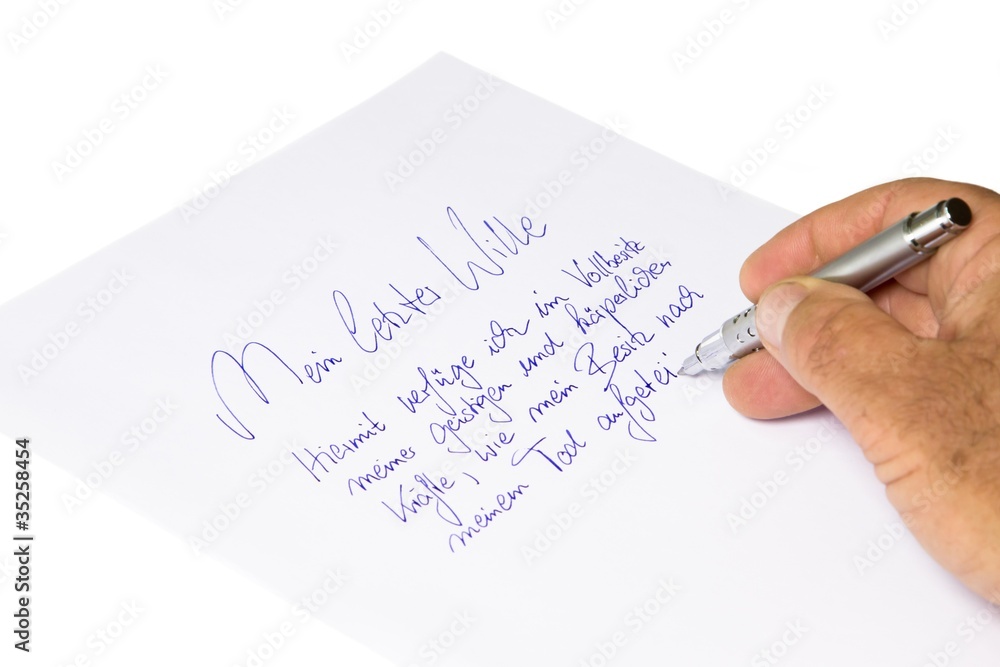 Mein letzter Wille
Hiermit verfüge ich im Vollbesitz
meines geistigen und körperlichen
Kräfte, wie mein Besitz nach
meinem Tod aufgeteil
Adobe Stock | #35258454